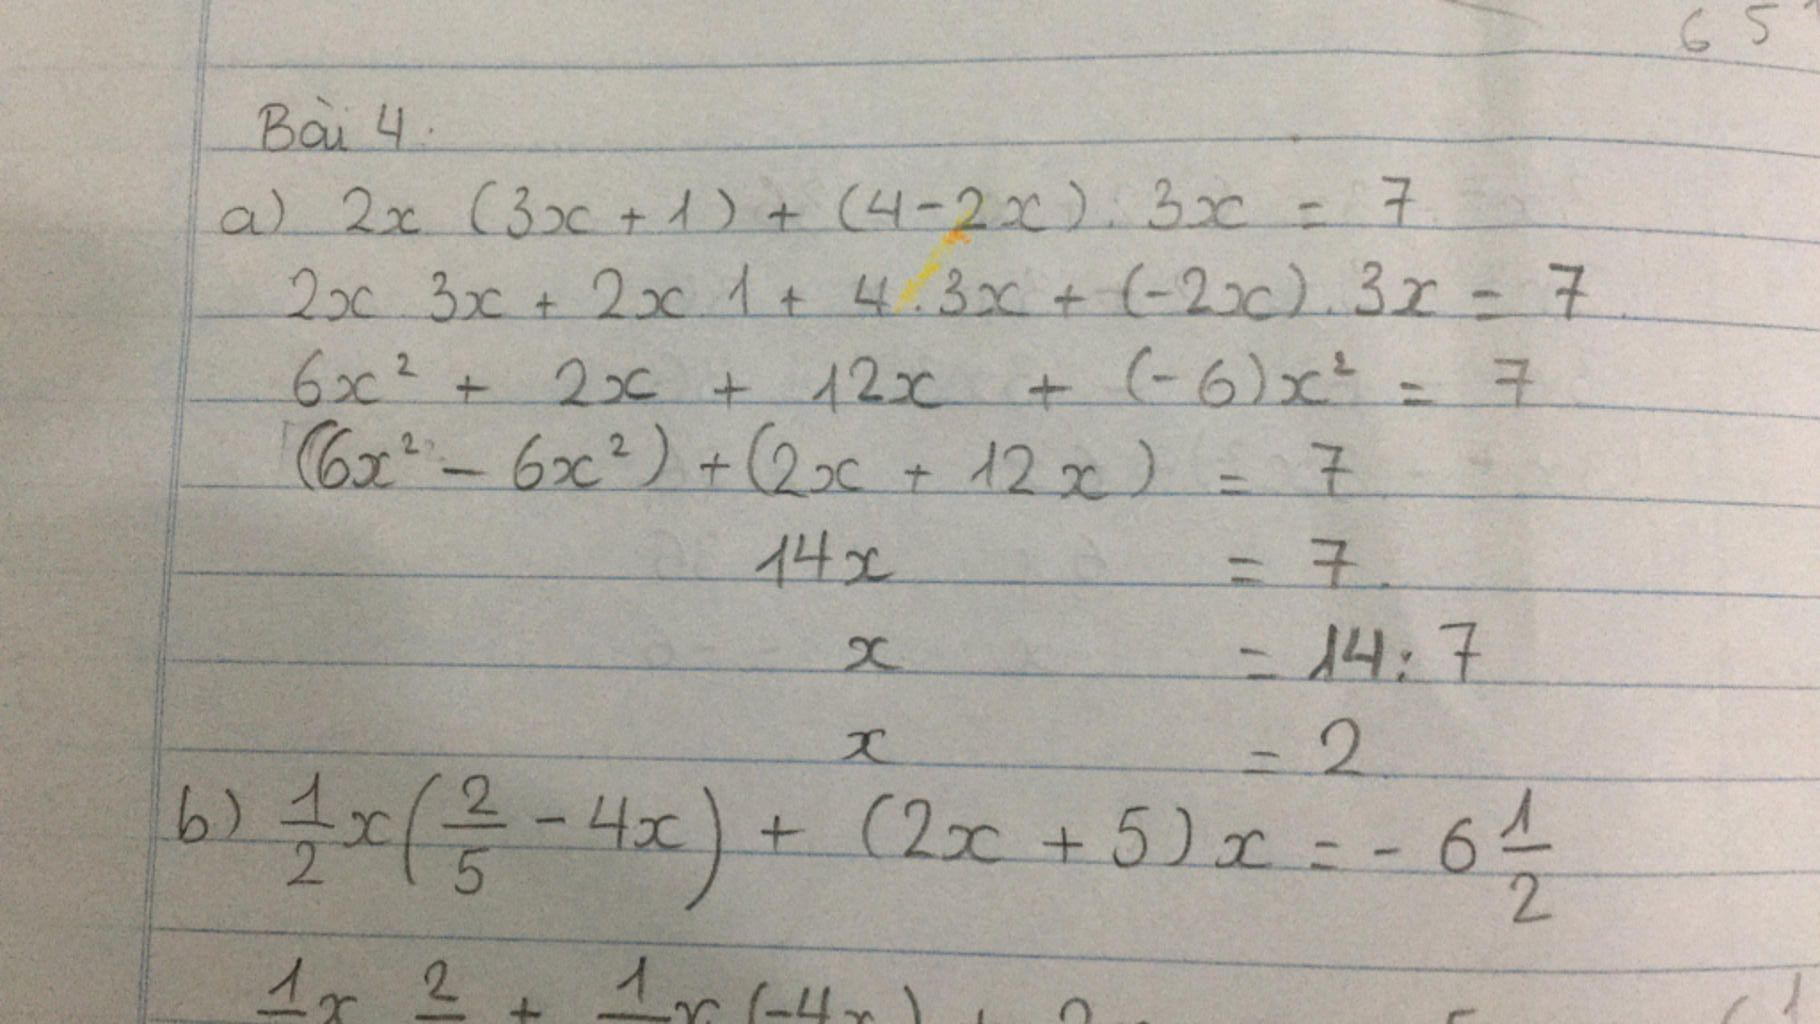 6 5
Bài 4.
a) 2x (3x + 1) + (4 - 2x). 3x = 7
2x. 3x + 2x. 1 + 4. 3x + (-2x). 3x = 7.
6x² + 2x + 12x + (-6)x² = 7
(6x² - 6x²) + (2x + 12x) = 7
14x = 7.
x = 14: 7
x = 2
b) 1/2 x (2/5 - 4x) + (2x + 5) x = - 6 1/2
1 x 2 + 1 x (-4x)